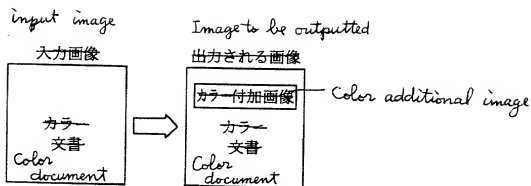 input image
入力画像
カラー
文書
Color
document
Image to be outputted
出力される画像
カラー付加画像
Color additional image
カラー
文書
Color
document